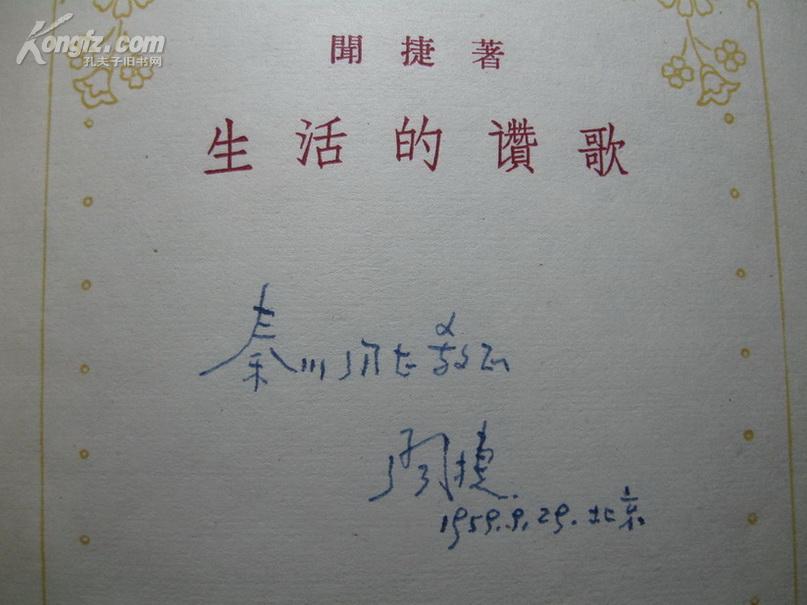 Kongfz.com
孔夫子旧书网
聞捷著
生活的讚歌
秦川 教正
闻捷
1959.9.29.北京